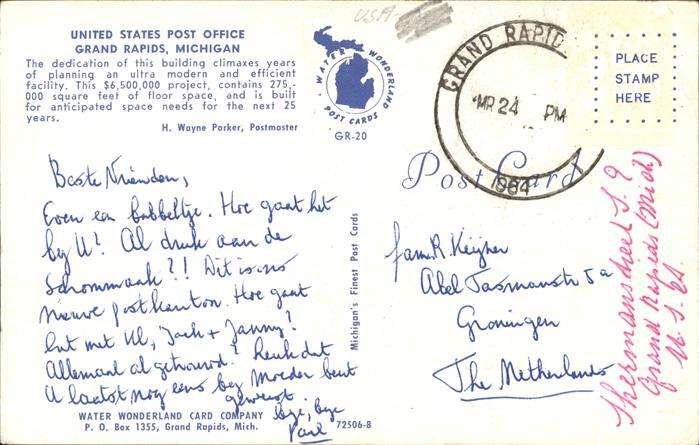 USA
UNITED STATES POST OFFICE
GRAND RAPIDS, MICHIGAN
The dedication of this building climaxes years
of planning an ultra modern and efficient
facility. This $6,500,000 project, contains 275,-
000 square feet of floor space, and is built
for anticipated space needs for the next 25
years.
H. Wayne Parker, Postmaster
WATER WONDERLAND
POST CARDS
GR-20
GRAND RAPID
MR 24 PM
1964
PLACE
STAMP
HERE
Post Card
Beste Vrienden,
Even een babbeltje. Hoe gaat het
by U? Al druk aan de
schoonmaak?! Dit is ons
nieuwe postkantoor. Hoe gaat
het met Ul, Jack + Janny?
Allemaal al getrouwd? Leuk dat
U laatst nog eens by Moeder bent
geweest.
bye, bye
Michigan's Finest Post Cards
fam. R. Keijzer
Abel Tasmanstr 5a
Groningen
The Netherlands
S.E.
Grand Rapids (Mich)
U.S.A.
WATER WONDERLAND CARD COMPANY
P. O. Box 1355, Grand Rapids, Mich.
72506-B